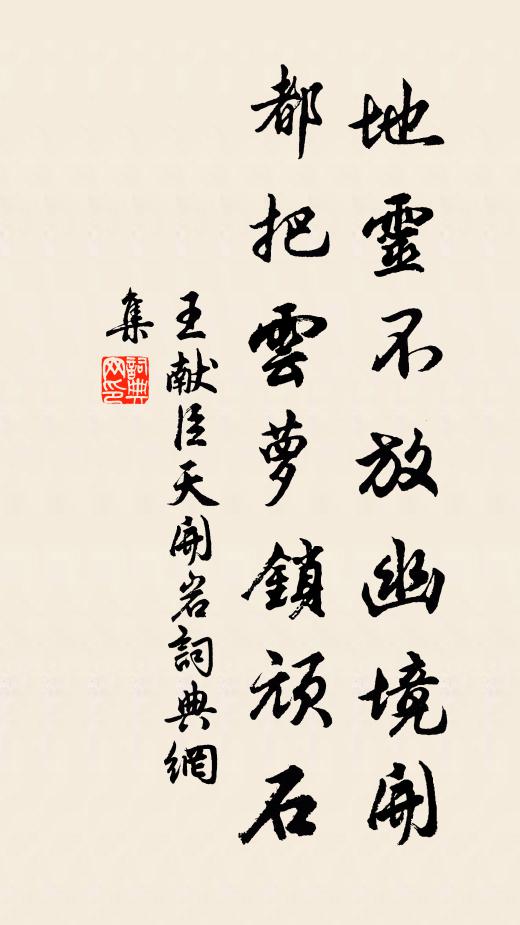 地靈不放幽境開
都把雲夢鎖頑石
王献臣天開岩詞典網
集
詞典
网印